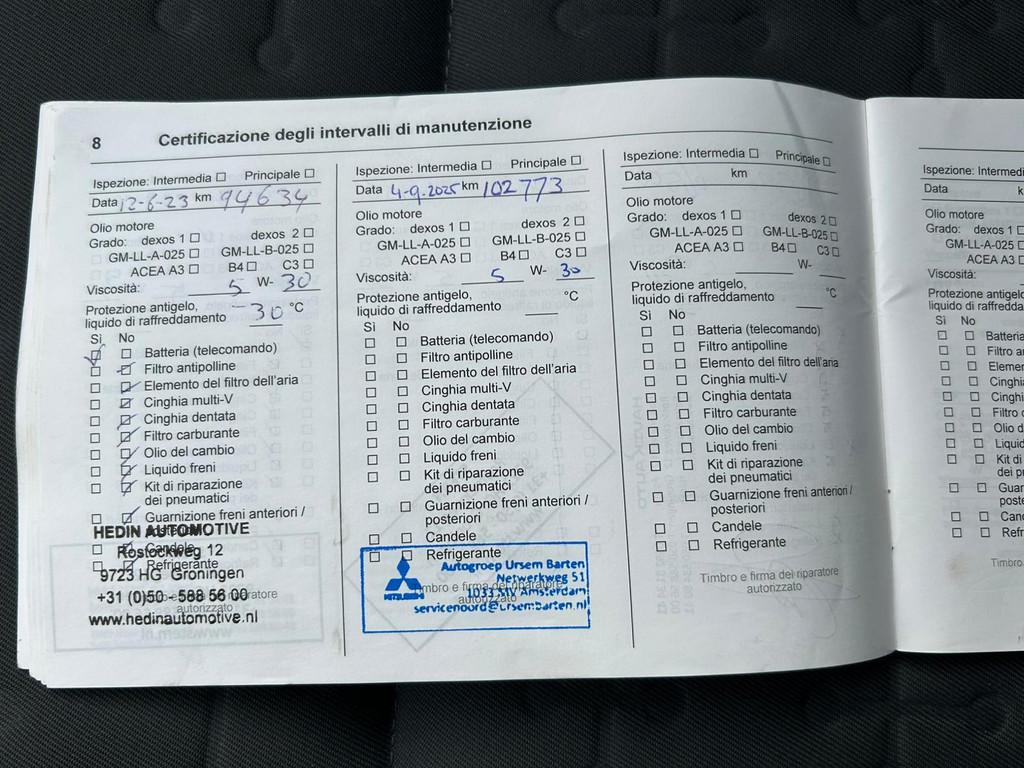 8 Certificazione degli intervalli di manutenzione
Ispezione: Intermedia Principale
Data 12-6-23 km 94634
Olio motore
Grado: dexos 1 dexos 2
GM-LL-A-025 GM-LL-B-025
ACEA A3 B4 C3
Viscosità: 5 W- 30
Protezione antigelo,
liquido di raffreddamento -30 °C
Sì No
Batteria (telecomando)
Filtro antipolline
Elemento del filtro dell'aria
Cinghia multi-V
Cinghia dentata
Filtro carburante
Olio del cambio
Liquido freni
Kit di riparazione
dei pneumatici
Guarnizione freni anteriori /
HEDIN AUTOMOTIVE
Candele
Rostockweg 12
Refrigerante
9723 HG Groningen
+31 (0)50 - 588 56 00
autorizzato
www.hedinautomotive.nl
Ispezione: Intermedia Principale
Data 4-9.2025 km 102773
Olio motore
Grado: dexos 1 dexos 2
GM-LL-A-025 GM-LL-B-025
ACEA A3 B4 C3
Viscosità: 5 W- 30
Protezione antigelo,
liquido di raffreddamento °C
Sì No
Batteria (telecomando)
Filtro antipolline
Elemento del filtro dell'aria
Cinghia multi-V
Cinghia dentata
Filtro carburante
Olio del cambio
Liquido freni
Kit di riparazione
dei pneumatici
Guarnizione freni anteriori /
posteriori
Candele
Refrigerante
Autogroep Ursem Barten
Netwerkweg 51
1033 MV Amsterdam
servicenoord@ursembarten.nl
MITSUBISHI
Timbro e firma del riparatore
autorizzato
Ispezione: Intermedia Principale
Data km
Olio motore
Grado: dexos 1 dexos 2
GM-LL-A-025 GM-LL-B-025
ACEA A3 B4 C3
Viscosità: W-
Protezione antigelo,
liquido di raffreddamento °C
Sì No
Batteria (telecomando)
Filtro antipolline
Elemento del filtro dell'aria
Cinghia multi-V
Cinghia dentata
Filtro carburante
Olio del cambio
Liquido freni
Kit di riparazione
dei pneumatici
Guarnizione freni anteriori /
posteriori
Candele
Refrigerante
Timbro e firma del riparatore
autorizzato
Ispezione: Intermedi
Data k
Olio motore
Grado: dexos 1
GM-LL-A-025
ACEA A3
Viscosità:
Protezione antigelo
liquido di raffredda
Sì No
Batteria
Filtro an
Elemen
Cinghi
Cinghi
Filtro c
Olio d
Liquid
Kit di
dei p
Guar
post
Cand
Refr
Timbro